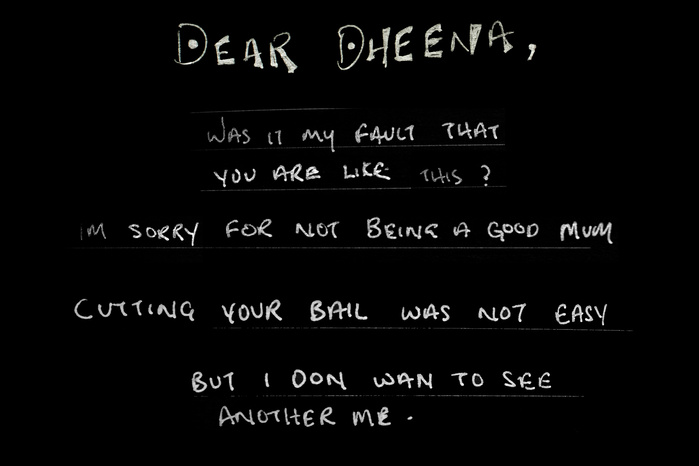 DEAR DHEENA,
WAS IT MY FAULT THAT
YOU ARE LIKE THIS ?
IM SORRY FOR NOT BEING A GOOD MUM
CUTTING YOUR BAIL WAS NOT EASY
BUT I DON WAN TO SEE
ANOTHER ME .